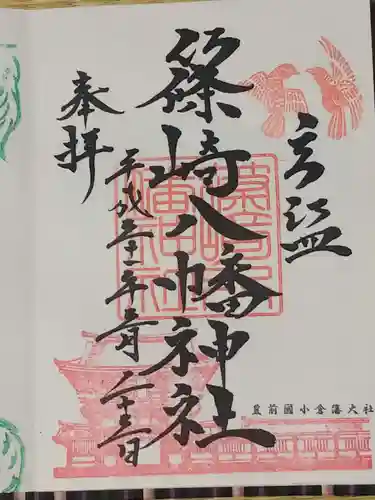 篠崎八幡神社
奉拝
平成三十一年 月二十三日
篠崎八
幡神社
豊前國小倉藩大社